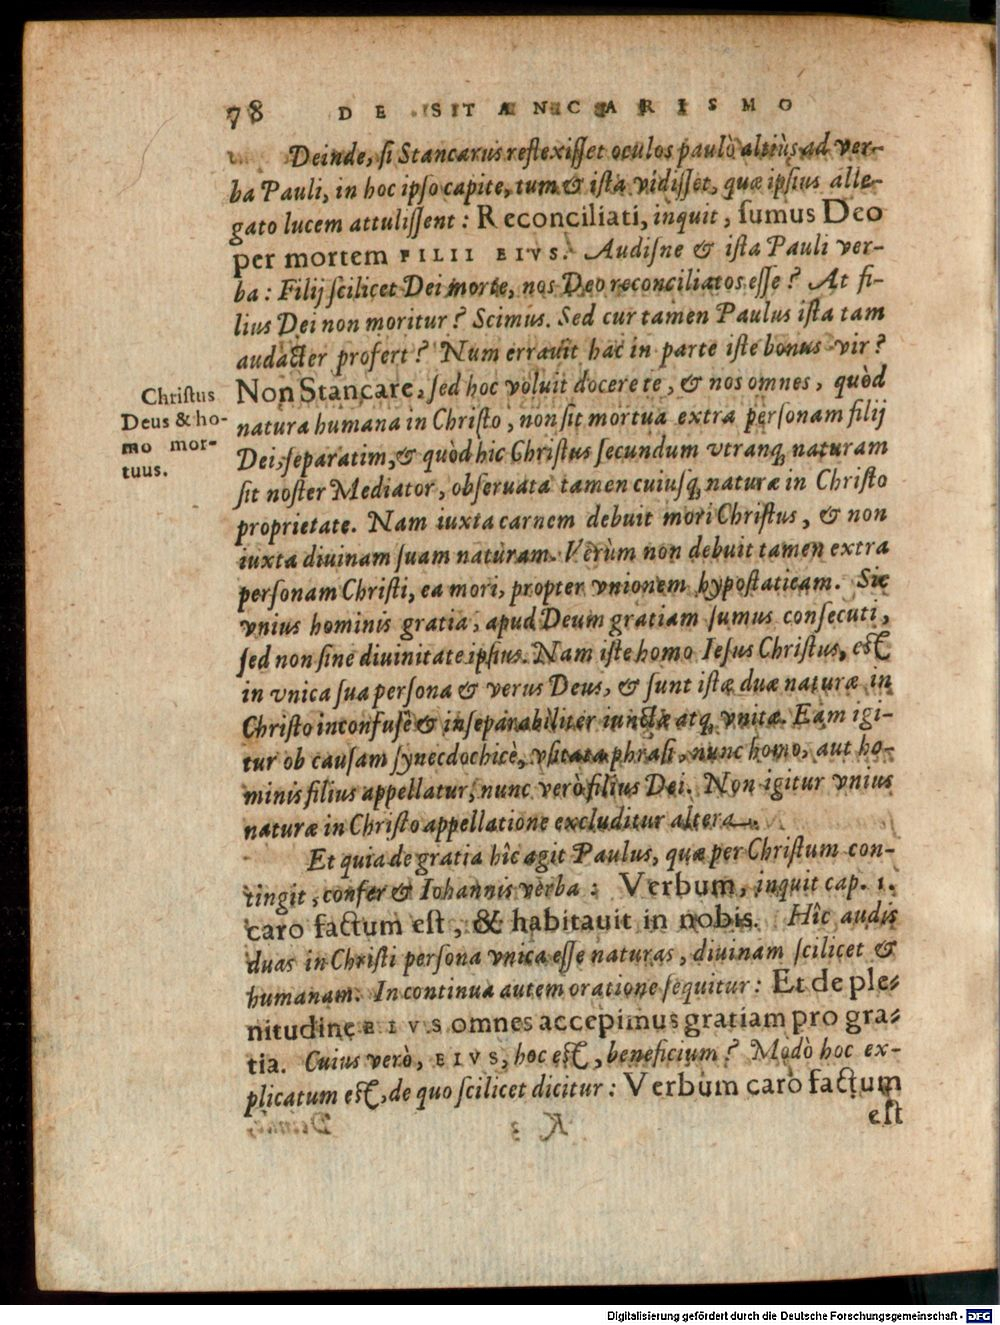 78 DE STANCARISMO
Deinde, ſi Stancarus reflexiſſet oculos paulò altiùs ad ver-
ba Pauli, in hoc ipſo capite, tum & iſta vidiſſet, quæ ipſius alle-
gato lucem attuliſſent: Reconciliati, inquit, ſumus Deo
per mortem FILII EIVS. Audiſne & iſta Pauli ver-
ba: Filij ſcilicet Dei morte, nos Deo reconciliatos eſſe? At fi-
lius Dei non moritur? Scimus. Sed cur tamen Paulus iſta tam
audacter profert? Num errauit hac in parte iſte bonus vir?
Non Stancare, ſed hoc voluit docere te, & nos omnes, quòd
natura humana in Chriſto, non ſit mortua extra perſonam filij
Dei, ſeparatim, & quòd hic Chriſtus ſecundum vtranq; naturam
ſit noſter Mediator, obſeruata tamen cuiuſq; naturæ in Chriſto
proprietate. Nam iuxta carnem debuit mori Chriſtus, & non
iuxta diuinam ſuam naturam. Verùm non debuit tamen extra
perſonam Chriſti, ea mori, propter vnionem hypoſtaticam. Sic
vnius hominis gratia, apud Deum gratiam ſumus conſecuti,
ſed non ſine diuinitate ipſius. Nam iſte homo Ieſus Chriſtus, eſt
in vnica ſua perſona & verus Deus, & ſunt iſtæ duæ naturæ in
Chriſto inconfuſè & inſeparabiliter iunctæ atq; vnitæ. Eam igi-
tur ob cauſam ſynecdochicè, vſitata phraſi, nunc homo, aut ho-
minis filius appellatur, nunc verò filius Dei. Non igitur vnius
naturæ in Chriſto appellatione excluditur altera.
Et quia de gratia hîc agit Paulus, quæ per Chriſtum con-
tingit, confer & Iohannis verba: Verbum, inquit cap. 1.
caro factum eſt, & habitauit in nobis. Hîc audis
duas in Chriſti perſona vnica eſſe naturas, diuinam ſcilicet &
humanam. In continua autem oratione ſequitur: Et de ple-
nitudine EIVS omnes accepimus gratiam pro gra-
tia. Cuius verò, EIVS, hoc eſt, beneficium? Modò hoc ex-
plicatum eſt, de quo ſcilicet dicitur: Verbum caro factum
eſt
Chriſtus
Deus & ho-
mo mor-
tuus.
Digitalisierung gefördert durch die Deutsche Forschungsgemeinschaft - DFG